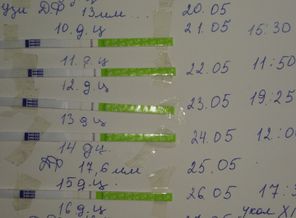 ДФ 13мм... 20.05
10. д.ц 21.05 15:30
11. д.ц 22.05 11:50
12. д.ц 23.05 19:25
13 д.ц 24.05 12:0
14 дц
ДФ 17,6 мм 25.05
15 д.ц. 26.05 17:
16 д.ц